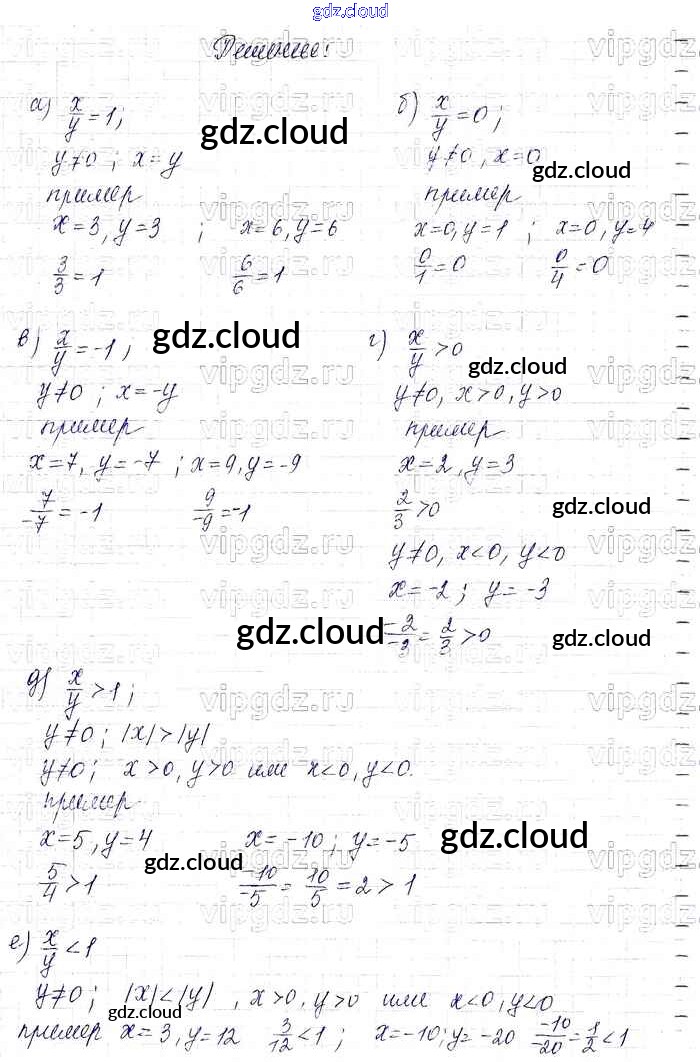 gdz.cloud
Решение:
а) x/y = 1;
y≠0; x=y
пример
x=3, y=3 ; x=6, y=6
3/3 = 1 6/6 = 1
б) x/y = 0;
y≠0, x=0
пример
x=0, y=1 ; x=0, y=4
0/1 = 0 0/4 = 0
в) x/y = -1,
y≠0 ; x=-y
пример
x=7, y=-7 ; x=9, y=-9
7/-7 = -1 9/-9 = -1
г) x/y > 0
y≠0, x>0, y>0
пример
x=2, y=3
2/3 > 0
y≠0, x<0, y<0
x=-2; y=-3
-2/-3 = 2/3 > 0
д) x/y > 1;
y≠0; |x|>|y|
y≠0; x>0, y>0 или x<0, y<0.
пример
x=5, y=4 x=-10; y=-5
5/4 > 1 -10/-5 = 10/5 = 2 > 1
е) x/y < 1
y≠0; |x|<|y|, x>0, y>0 или x<0, y<0
пример x=3, y=12 3/12 < 1; x=-10; y=-20 -10/-20 = 1/2 < 1
gdz.cloud
gdz.cloud
gdz.cloud
gdz.cloud
gdz.cloud
gdz.cloud
gdz.cloud
gdz.cloud
gdz.cloud
gdz.cloud
vipgdz.ru
vipgdz.ru
vipgdz.ru
vipgdz.ru